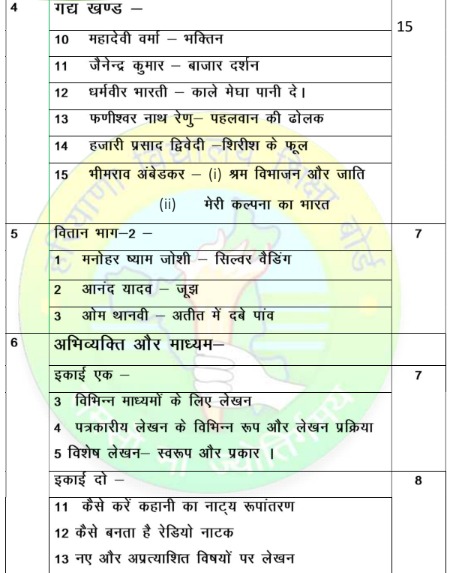 4 गद्य खण्ड – 15
10 महादेवी वर्मा – भक्तिन
11 जैनेन्द्र कुमार – बाजार दर्शन
12 धर्मवीर भारती – काले मेघा पानी दे।
13 फणीश्वर नाथ रेणु– पहलवान की ढोलक
14 हजारी प्रसाद द्विवेदी –शिरीश के फूल
15 भीमराव अंबेडकर – (i) श्रम विभाजन और जाति
(ii) मेरी कल्पना का भारत
5 वितान भाग–2 – 7
1 मनोहर ष्याम जोशी – सिल्वर वैडिंग
2 आनंद यादव – जूझ
3 ओम थानवी – अतीत में दबे पांव
6 अभिव्यक्ति और माध्यम–
इकाई एक – 7
3 विभिन्न माध्यमों के लिए लेखन
4 पत्रकारीय लेखन के विभिन्न रूप और लेखन प्रक्रिया
5 विशेष लेखन– स्वरूप और प्रकार ।
इकाई दो – 8
11 कैसे करें कहानी का नाट्य रूपांतरण
12 कैसे बनता है रेडियो नाटक
13 नए और अप्रत्याशित विषयों पर लेखन
हरियाणा विद्यालय शिक्षा बोर्ड